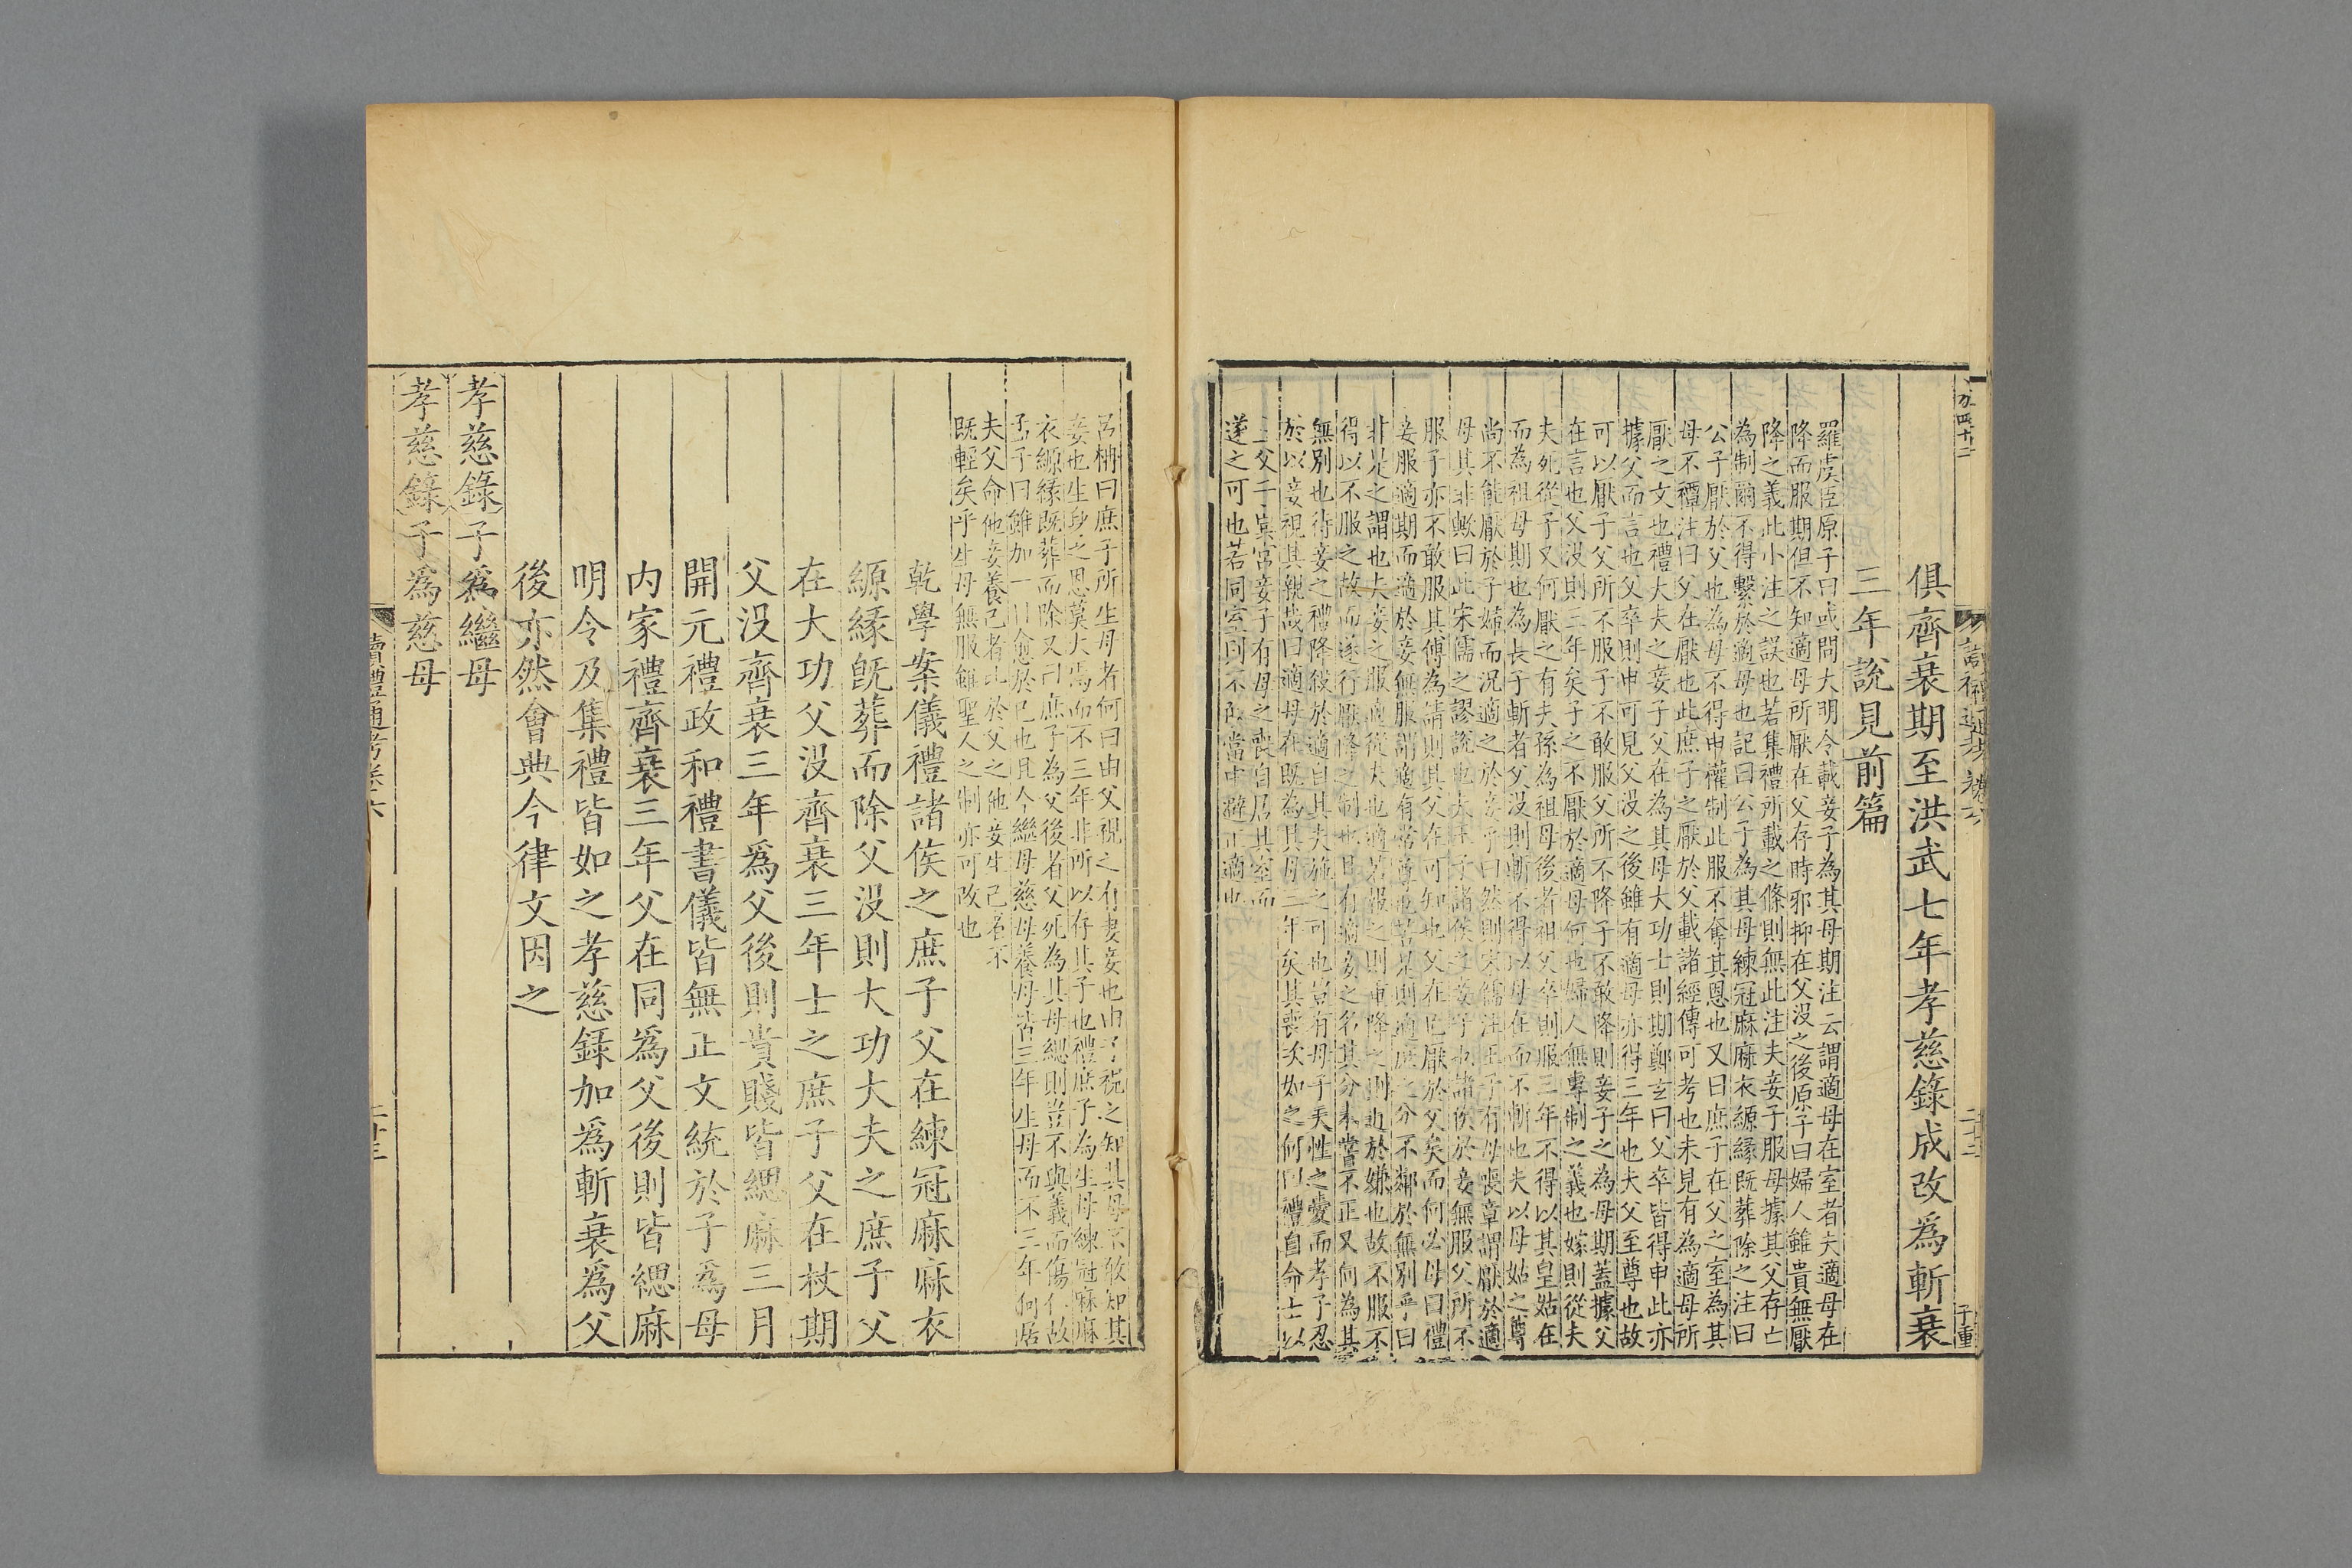 俱齊衰期至洪武七年孝慈錄成改爲斬衰
三年說見前篇
羅虞臣原子曰或問大明令載妾子為其母期注云謂適母在室者夫適母在
降而服期但不知適母所厭在父存時邪抑在父没之後原子曰婦人雖貴無厭
降之義此小注之誤也若集禮所載之條則無此注夫妾子服母據其父存亡
為制爾不得繫於適母也記曰公子為其母練冠麻麻衣縓緣既葬除之注曰
公子厭於父也為母不得申權制此服不奪其恩也又曰庶子在父之室為其
母不禫注曰父在厭也此庶子之厭於父載諸經傳可考也未見有為適母所
厭之文也禮大夫之妾子父在為其母大功士則期鄭玄曰父卒皆得申此亦
據父而言也父卒則申可見父没之後雖有適母亦得三年也夫父至尊也故
可以厭子父所不服子不敢服父所不降子不敢降則妾子之為母期蓋據父
在言也父没則三年矣子之不厭於適母何也婦人無專制之義也嫁則從夫
夫死從子又何厭之有夫孫為祖母後者祖父卒則服三年不得以其皇姑在
而為祖母期也為長子斬者父没則斬不得以母在而不斬也夫以母姑之尊
尚不能厭於子婦而況適之於妾子曰然則宋儒注王子有母喪章謂厭於適
母其非歟曰此宋儒之謬說也夫王子諸侯之妾子也諸侯於妾無服父所不
服子亦不敢服其傅為請則其父在可知也父在已厭於父矣而何必母曰禮
妾服適期而適於妾無服謂適有常尊也若是則適庶之分不鄰於無別乎曰
非是之謂也夫妾之服適從夫也適若報之則重降之則近於嫌也故不服不
得以不服之故而遂行厭降之制也且有適妾之名其分未嘗不正又何為其
無別也待妾之禮降彼於適自其夫施之可也豈有母子天性之愛而孝子忍
於以妾視其親哉曰適母在既為其母三年矣其喪次如之何曰禮自命士以
上父子異宮妾子有母之喪自居其室而
遂之可也若同室則不敢當中避正適也
呂柟曰庶子所生母者何曰由父視之有妻妾也由子視之知其母不敢知其
妾也生身之恩莫大焉而不三年非所以存其子也禮庶子為生母練冠麻麻
衣縓緣既葬而除又曰庶子為父後者父死為其母緦則豈不與義而傷仁故
孟子曰雖加一日愈於已也且今繼母慈母養母皆三年生母而不三年何居
夫父命他妾養己者比於父之他妾生己者不
既輕矣乎生母無服雖聖人之制亦可改也
乾學案儀禮諸侯之庶子父在練冠麻麻衣
縓緣既葬而除父没則大功大夫之庶子父
在大功父没齊衰三年士之庶子父在杖期
父没齊衰三年爲父後則貴賤皆緦麻三月
開元禮政和禮書儀皆無正文統於子爲母
内家禮齊衰三年父在同爲父後則皆緦麻
明令及集禮皆如之孝慈錄加爲斬衰爲父
後亦然會典今律文因之
孝慈錄子爲繼母
孝慈錄子爲慈母
讀禮通考卷六
二十三